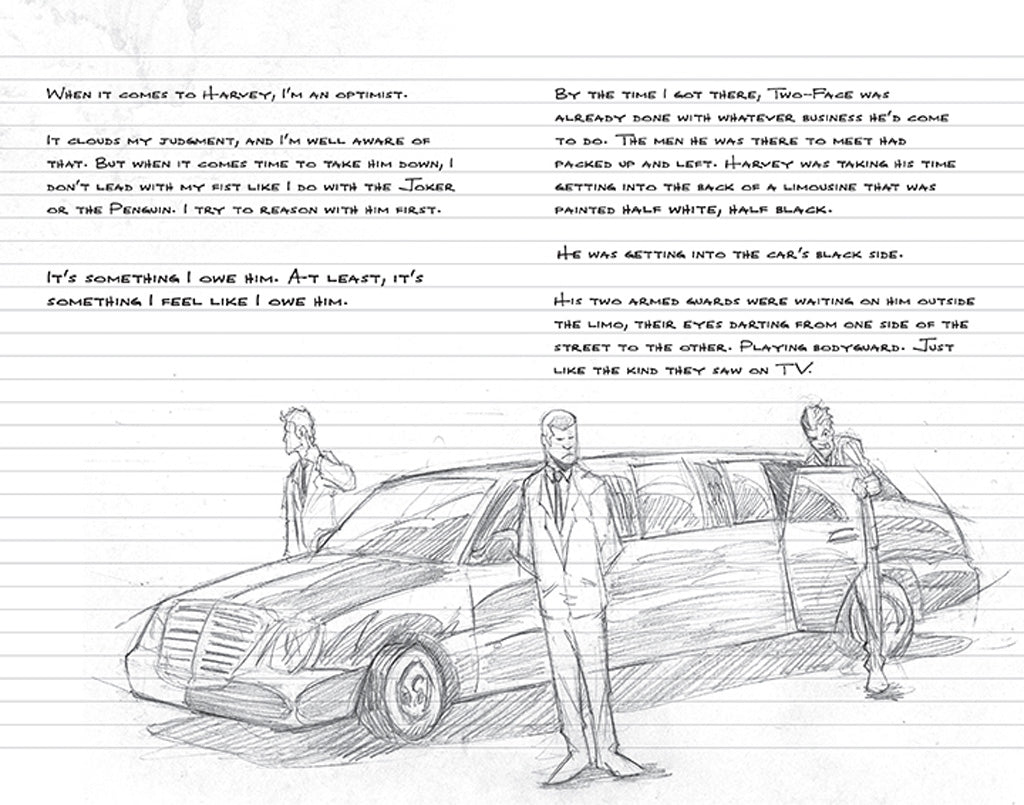 When it comes to Harvey, I'm an optimist.
It clouds my judgment, and I'm well aware of
that. But when it comes time to take him down, I
don't lead with my fist like I do with the Joker
or the Penguin. I try to reason with him first.
It's something I owe him. A-t least, it's
something I feel like I owe him.
By the time I got there, Two-Face was
already done with whatever business he'd come
to do. The men he was there to meet had
packed up and left. Harvey was taking his time
getting into the back of a limousine that was
painted half white, half black.
He was getting into the car's black side.
His two armed guards were waiting on him outside
the limo, their eyes darting from one side of the
street to the other. Playing bodyguard. Just
like the kind they saw on TV.